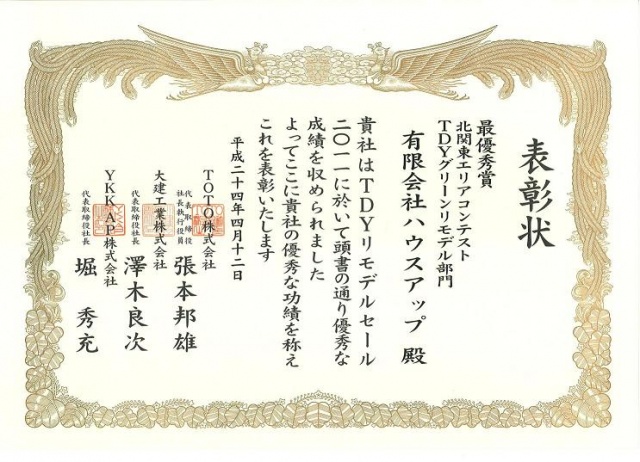 表彰状
最優秀賞
北関東エリアコンテスト
TDYグリーンリモデル部門
有限会社ハウスアップ 殿
貴社はTDYリモデルセール
二〇一一に於いて頭書の通り優秀な
成績を収められました
よってここに貴社の優秀な功績を称え
これを表彰いたします
平成二十四年四月十二日
TOTO株式会社
代表取締役
社長執行役員
張本邦雄
大建工業株式会社
代表取締役社長
澤木良次
YKKAP株式会社
代表取締役社長
堀秀充